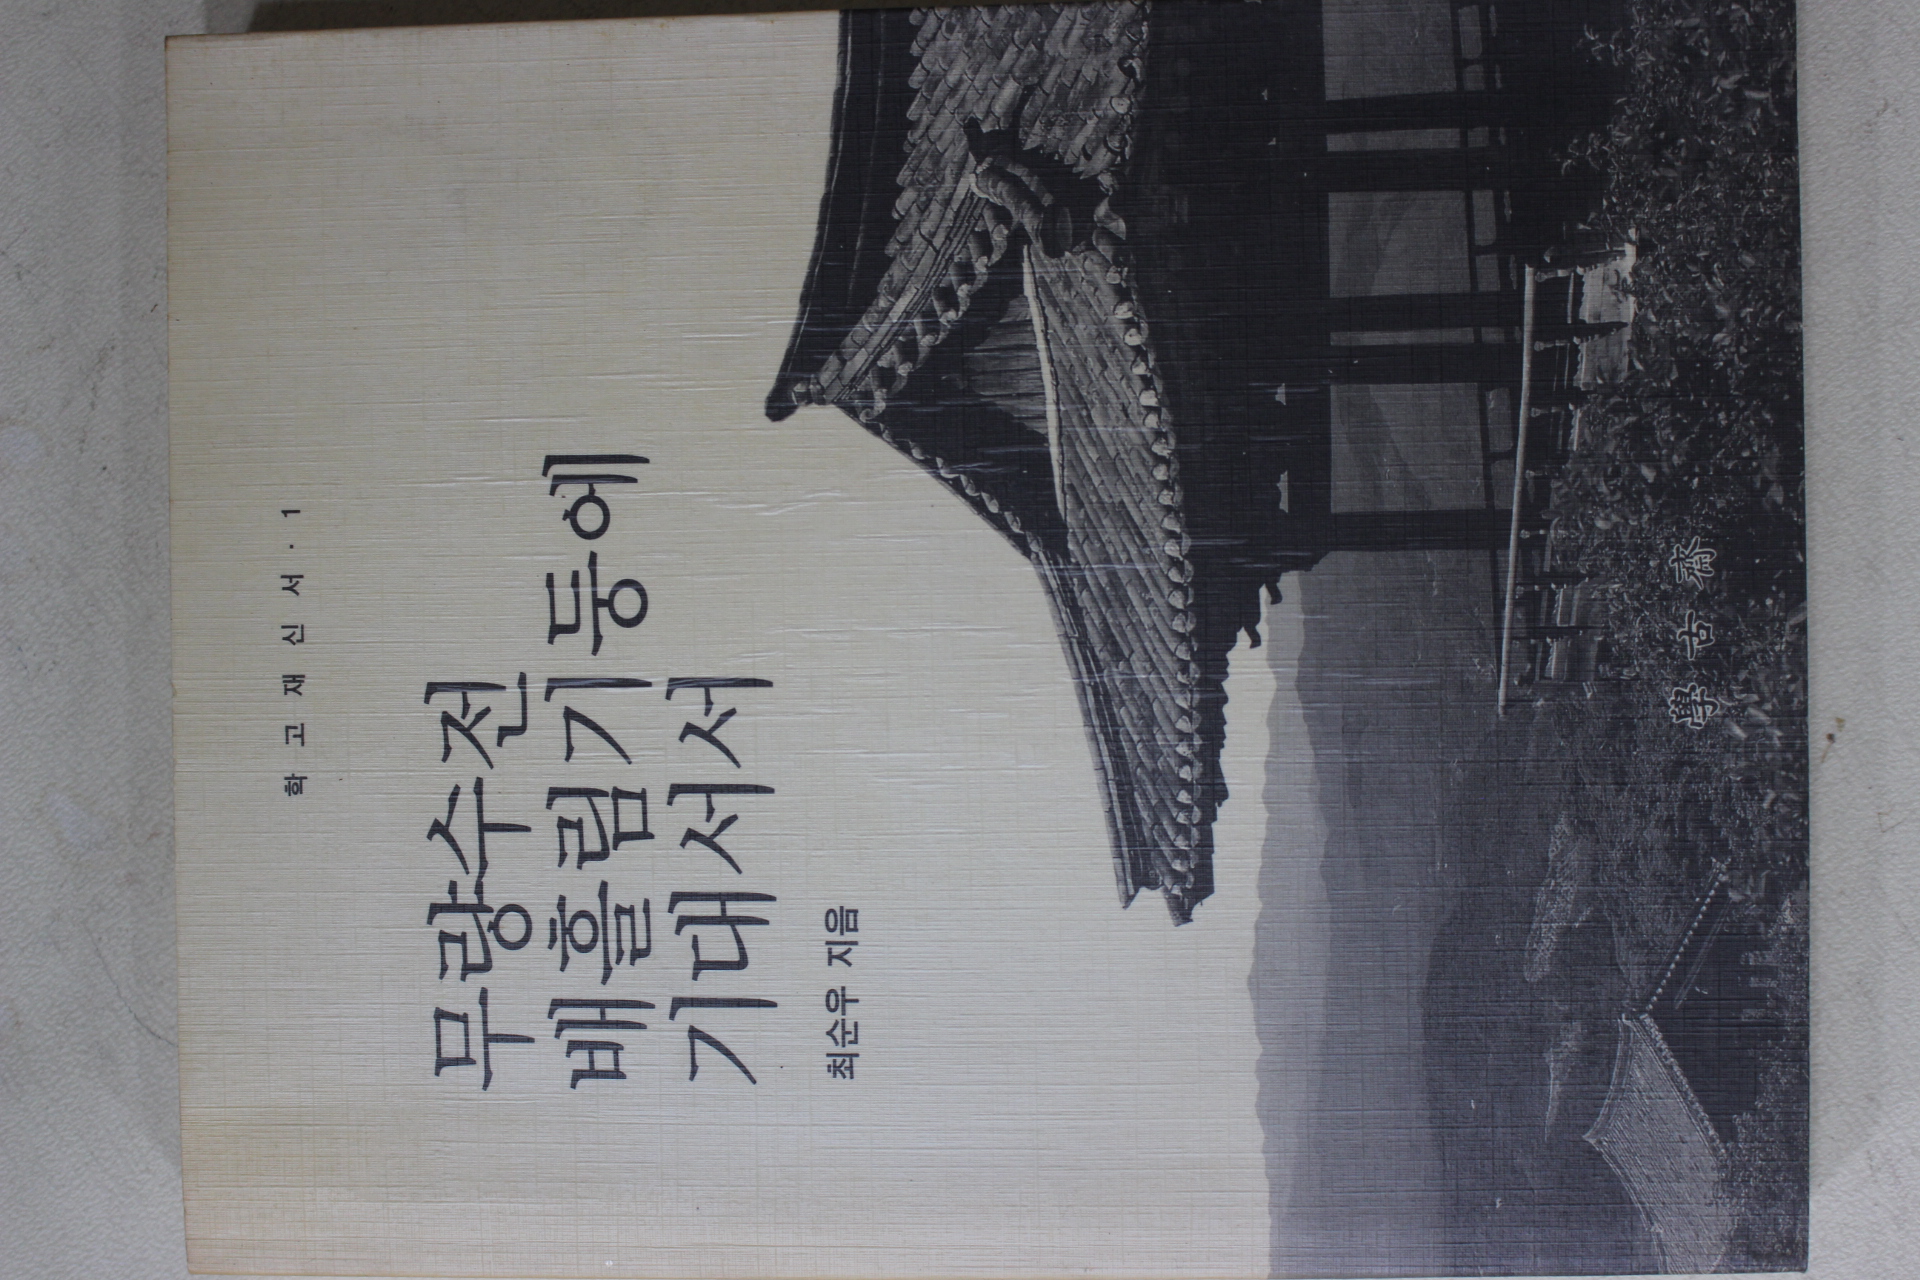 학고재신서·1
무량수전
배흘림기둥에
기대서서
최순우 지음
學古齋